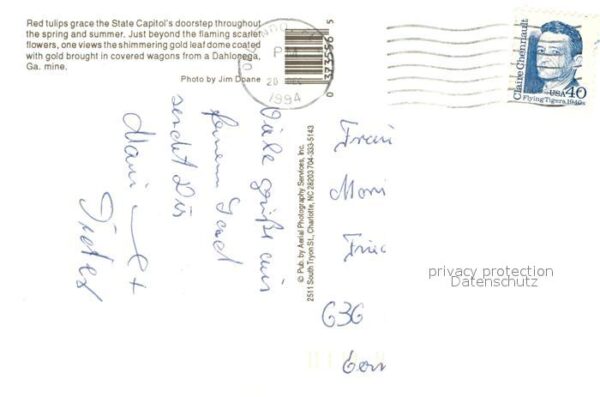 Red tulips grace the State Capitol's doorstep throughout
the spring and summer. Just beyond the flaming scarlet
flowers, one views the shimmering gold leaf dome coated
with gold brought in covered wagons from a Dahlonega,
Ga. mine.
Photo by Jim Doane
PM
1994
0 373556 5
Claire Chennault
USA 40
Flying Tigers, 1940s
Viele Grüße aus
fernem Land
sendet Dir
Dieter
© Pub. by Aerial Photography Services, Inc.
2511 South Tryon St., Charlotte, NC 28203 704-333-5143
Frau
636
privacy protection
Datenschutz